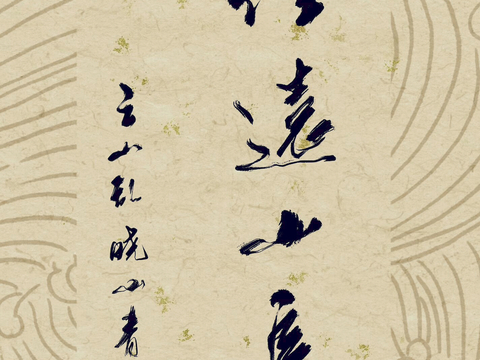 遠山長
云山乱晓山青